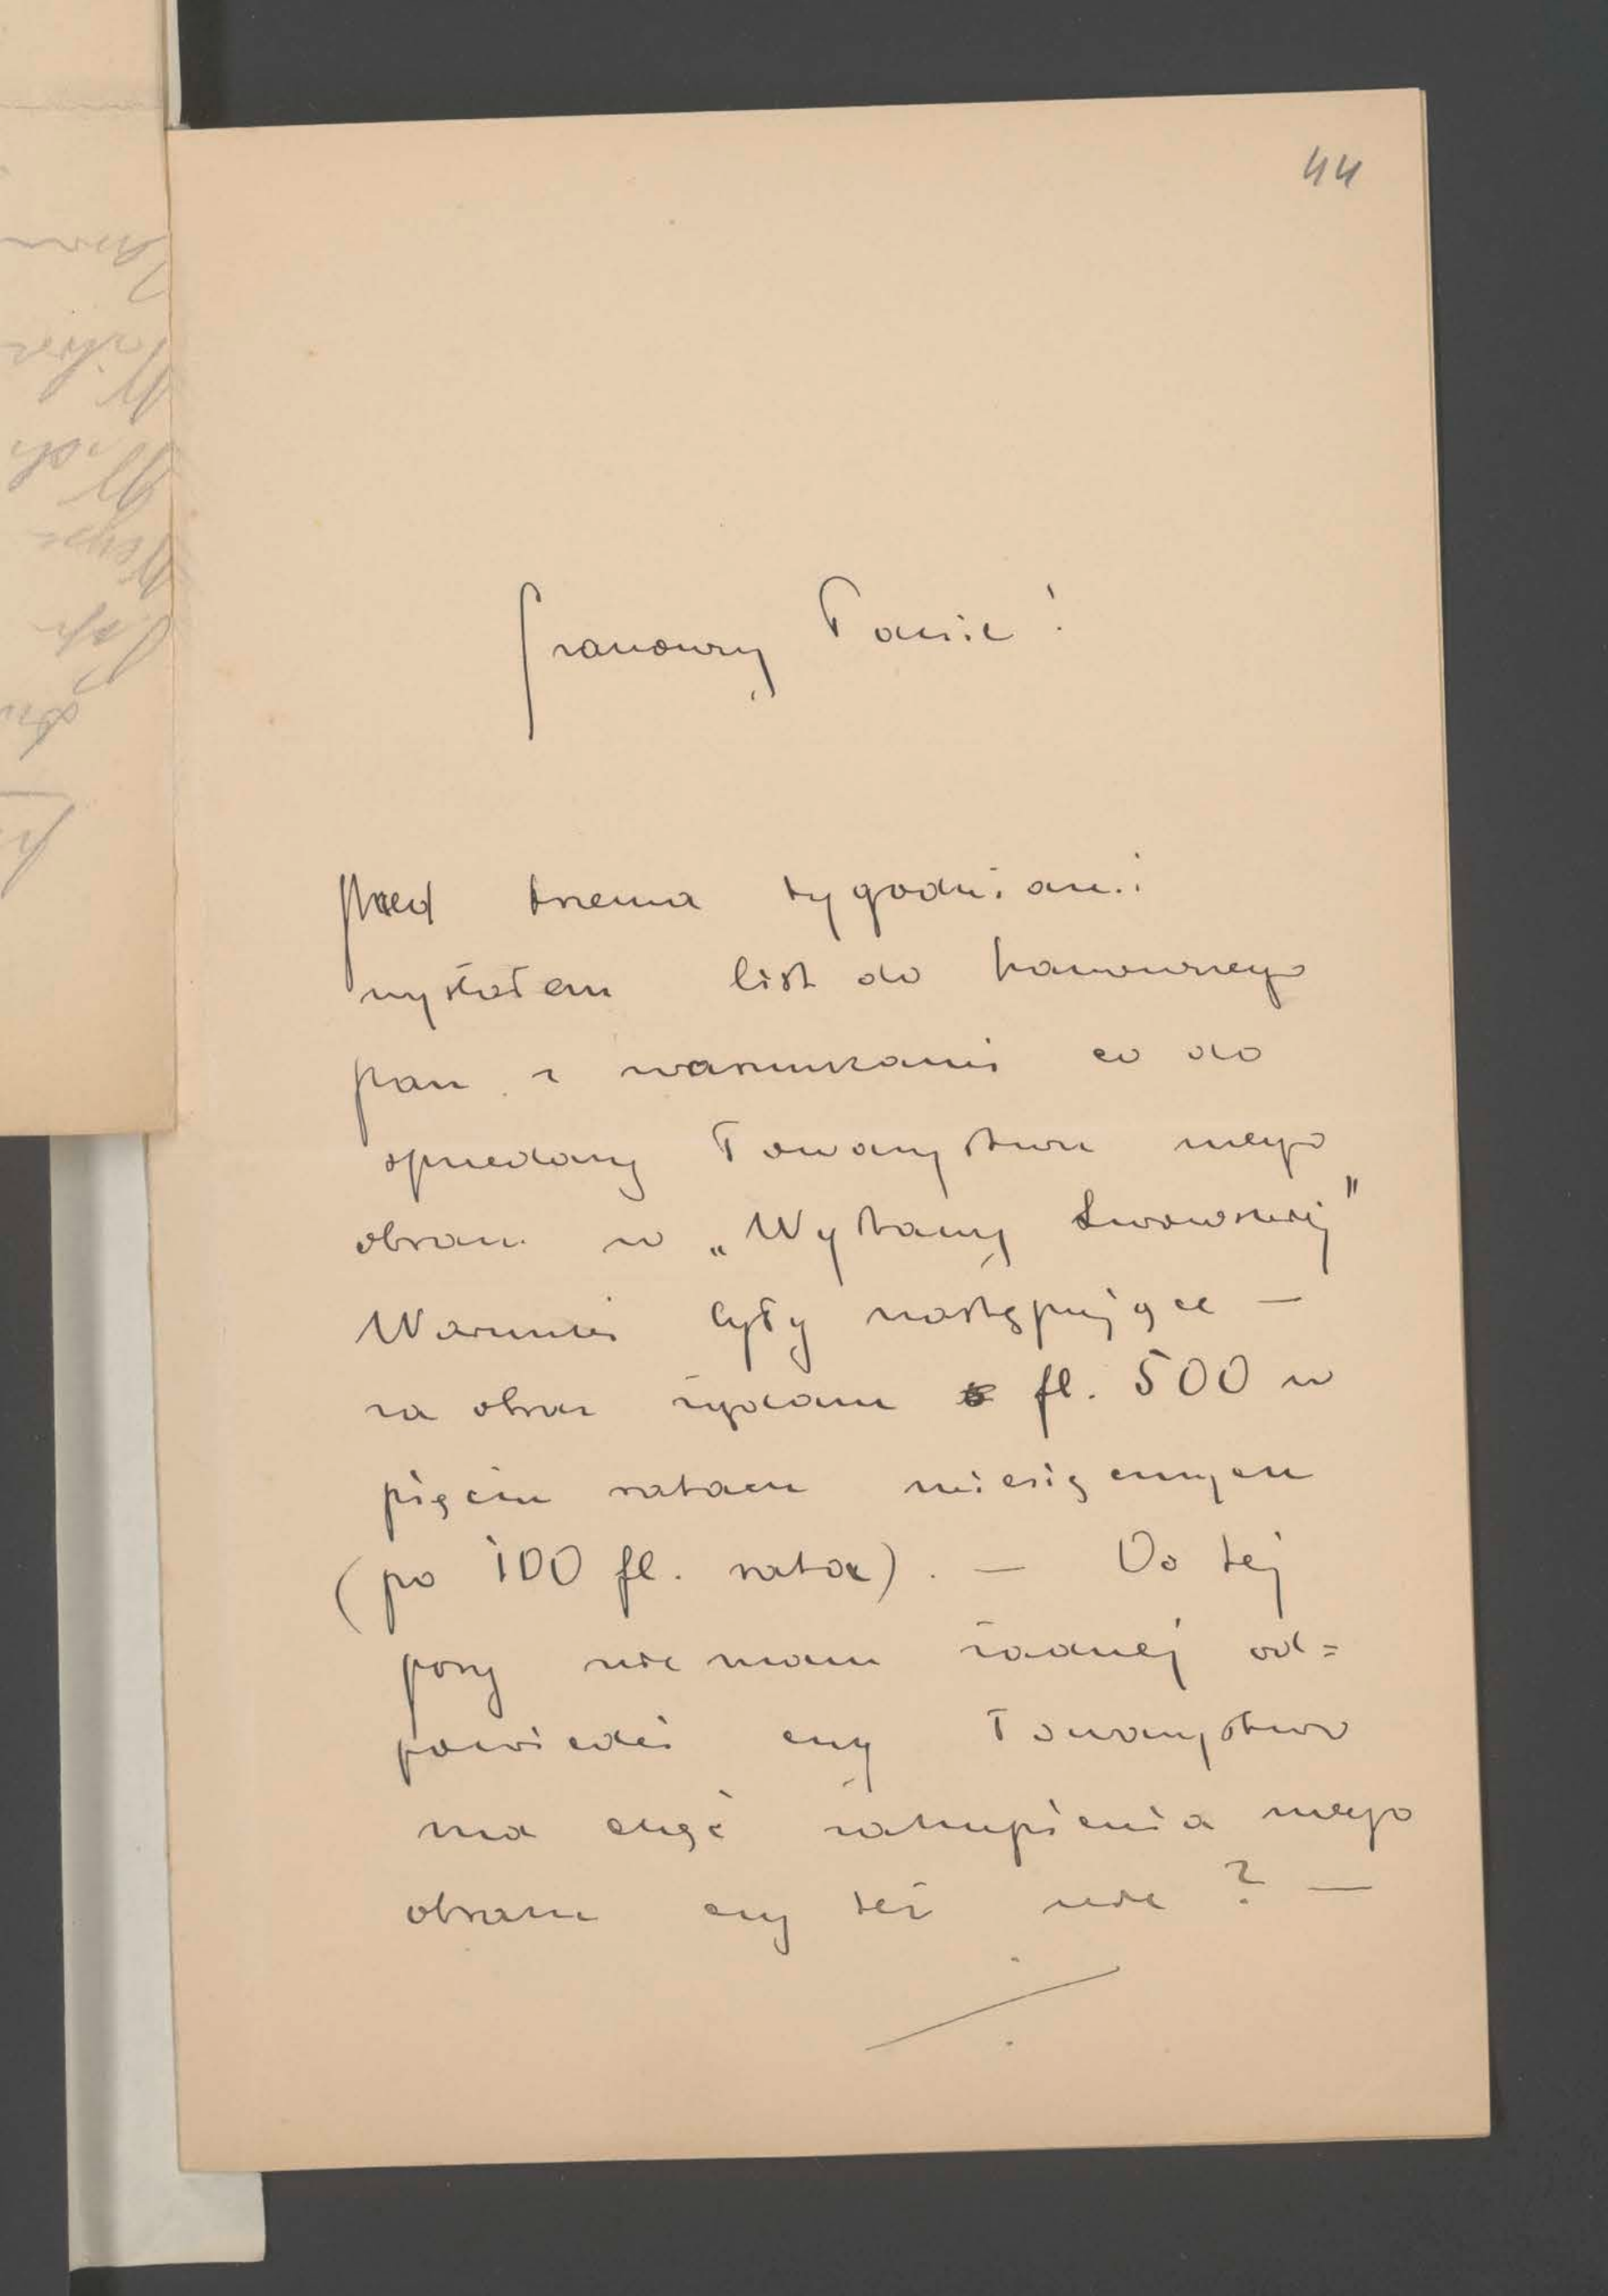 44
Szanowny Panie!
Przed trzema tygodniami
wysłałem list do Szanownego
pana z warunkami co do
sprzedaży Towarzystwu mego
obrazu z „Wystawy Lwowskiej”
Warunki były następujące —
za obraz żądam fl. 500 w
pięciu ratach miesięcznych
(po 100 fl. rata). — Do tej
pory nie mam żadnej od=
powiedzi czy Towarzystwo
ma chęć zakupienia mego
obrazu czy też nie? —